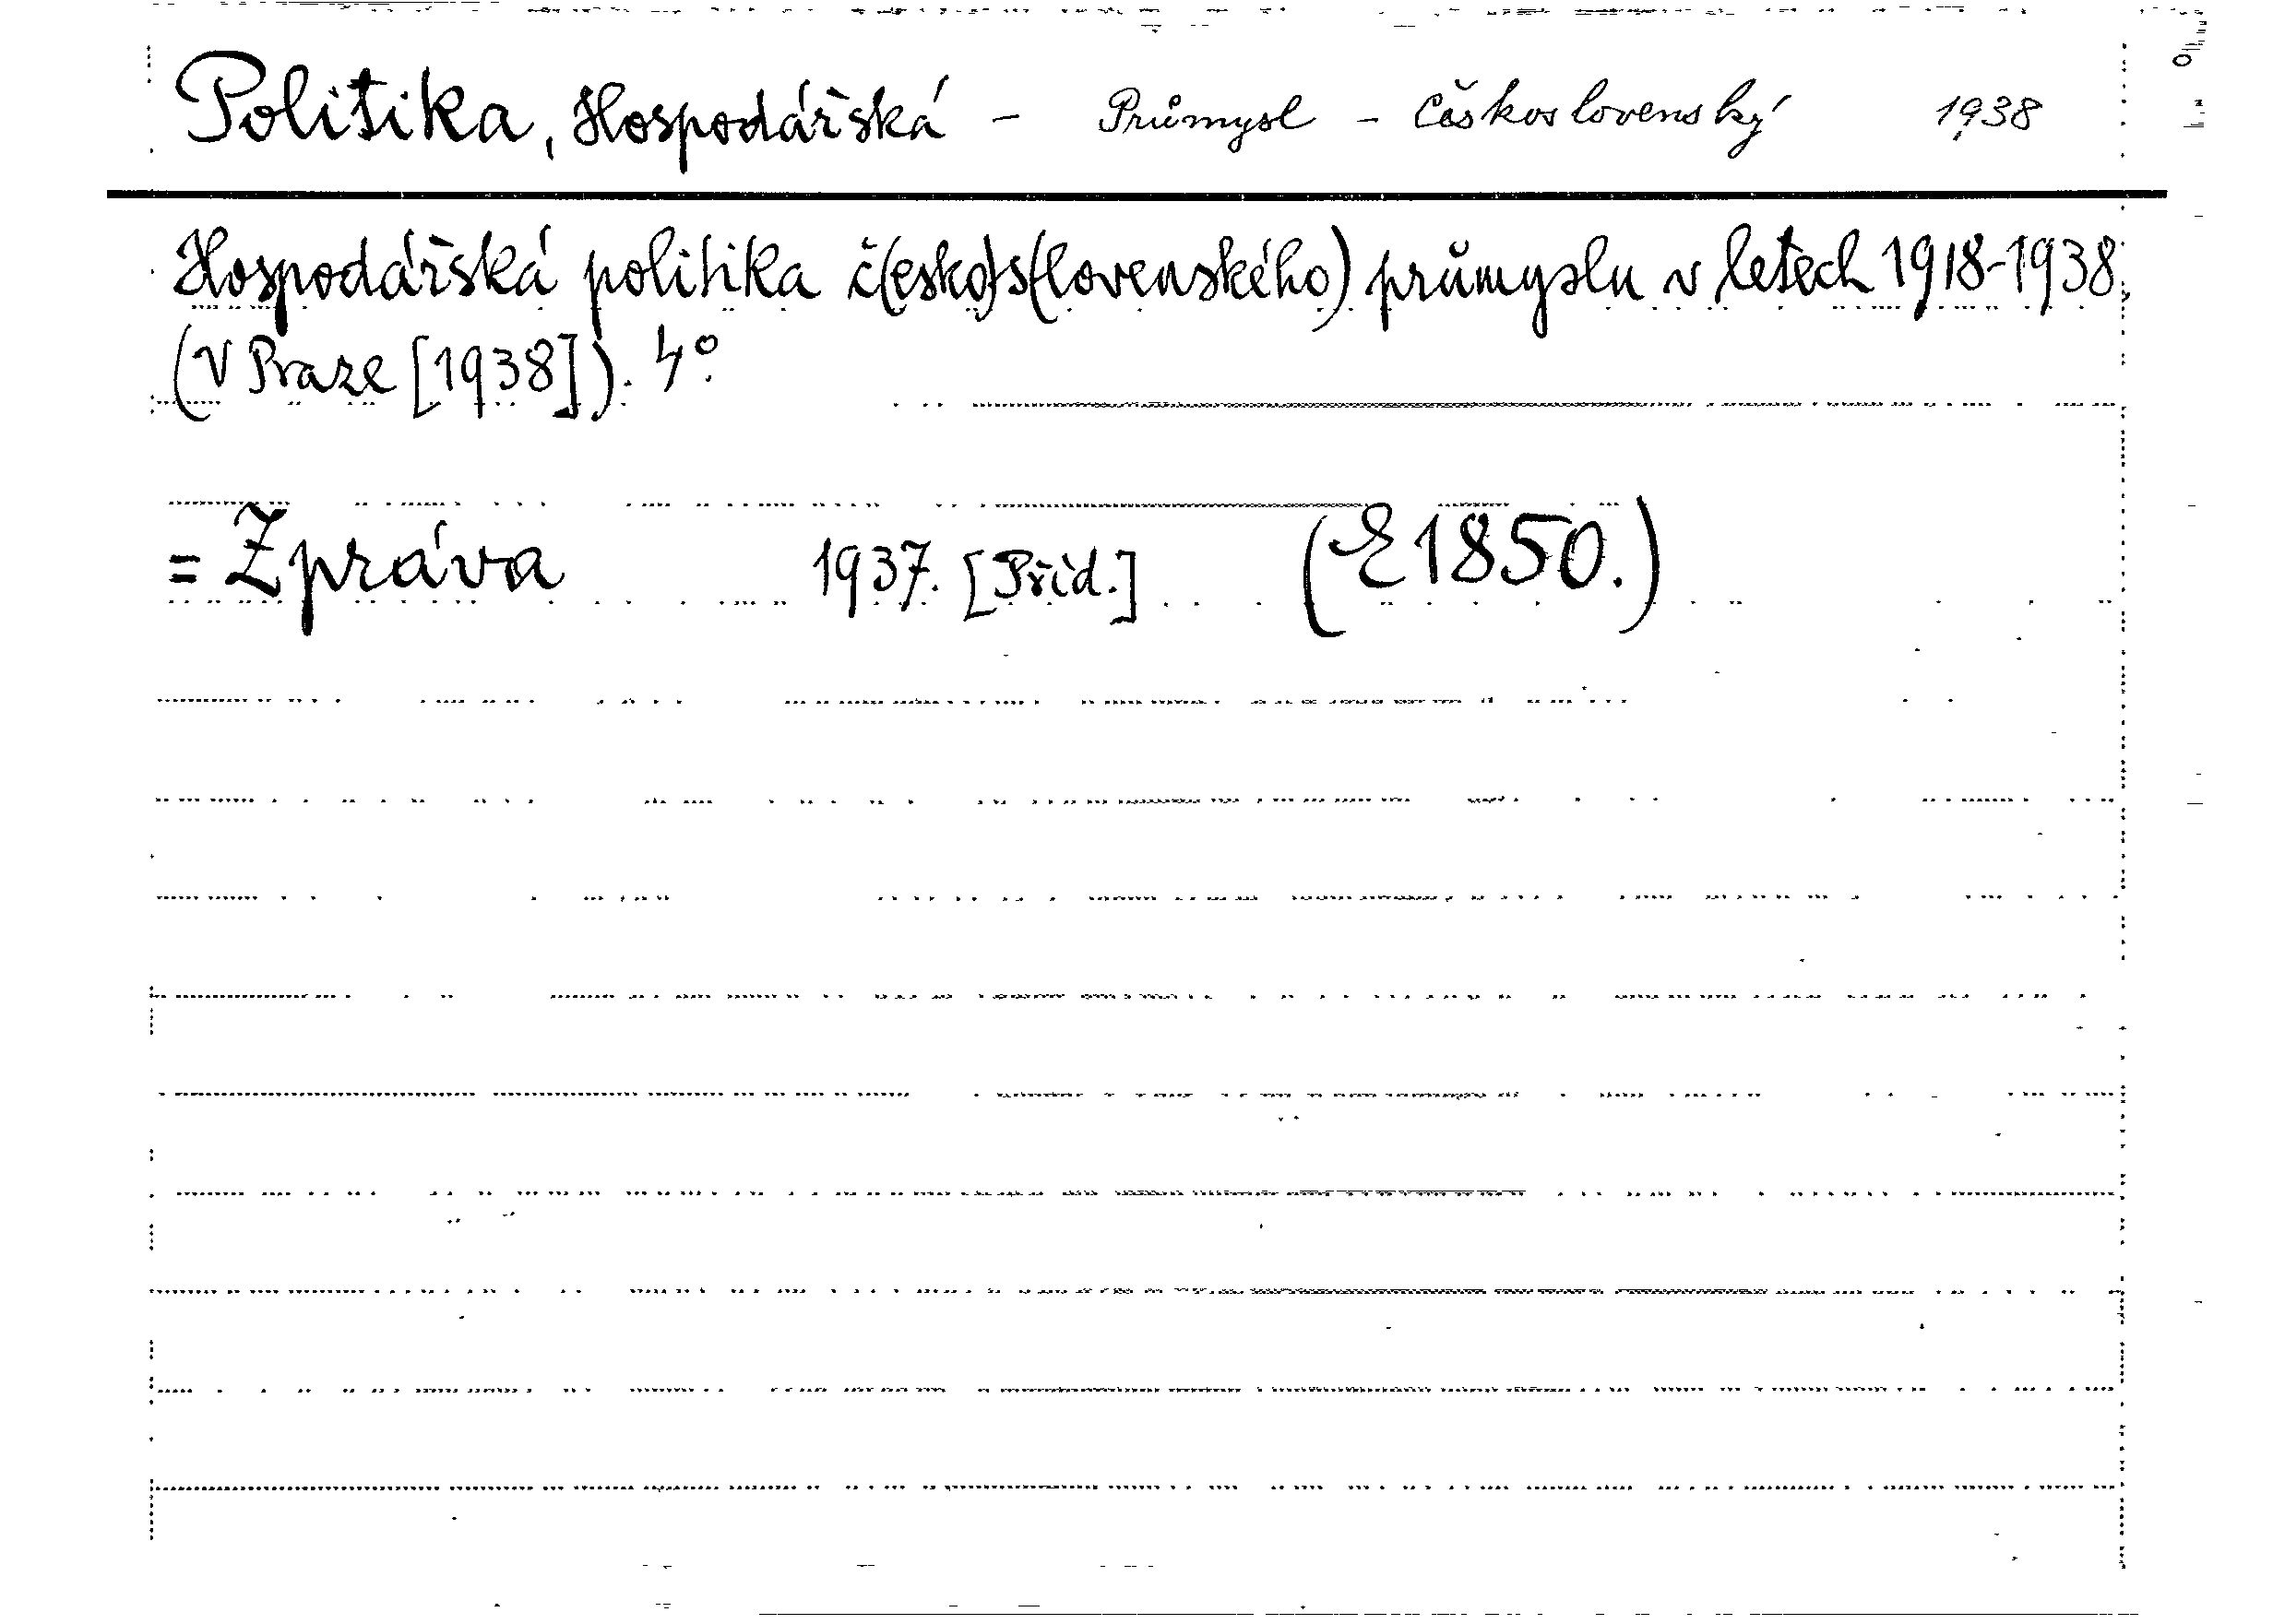 Politika, Hospodářská - Průmysl - Československý 1938
Hospodářská politika č(esko)s(lovenského) průmyslu v letech 1918-1938.
(V Praze [1938]). 4°.
= Zpráva 1937. [Příd.] (E 1850.)